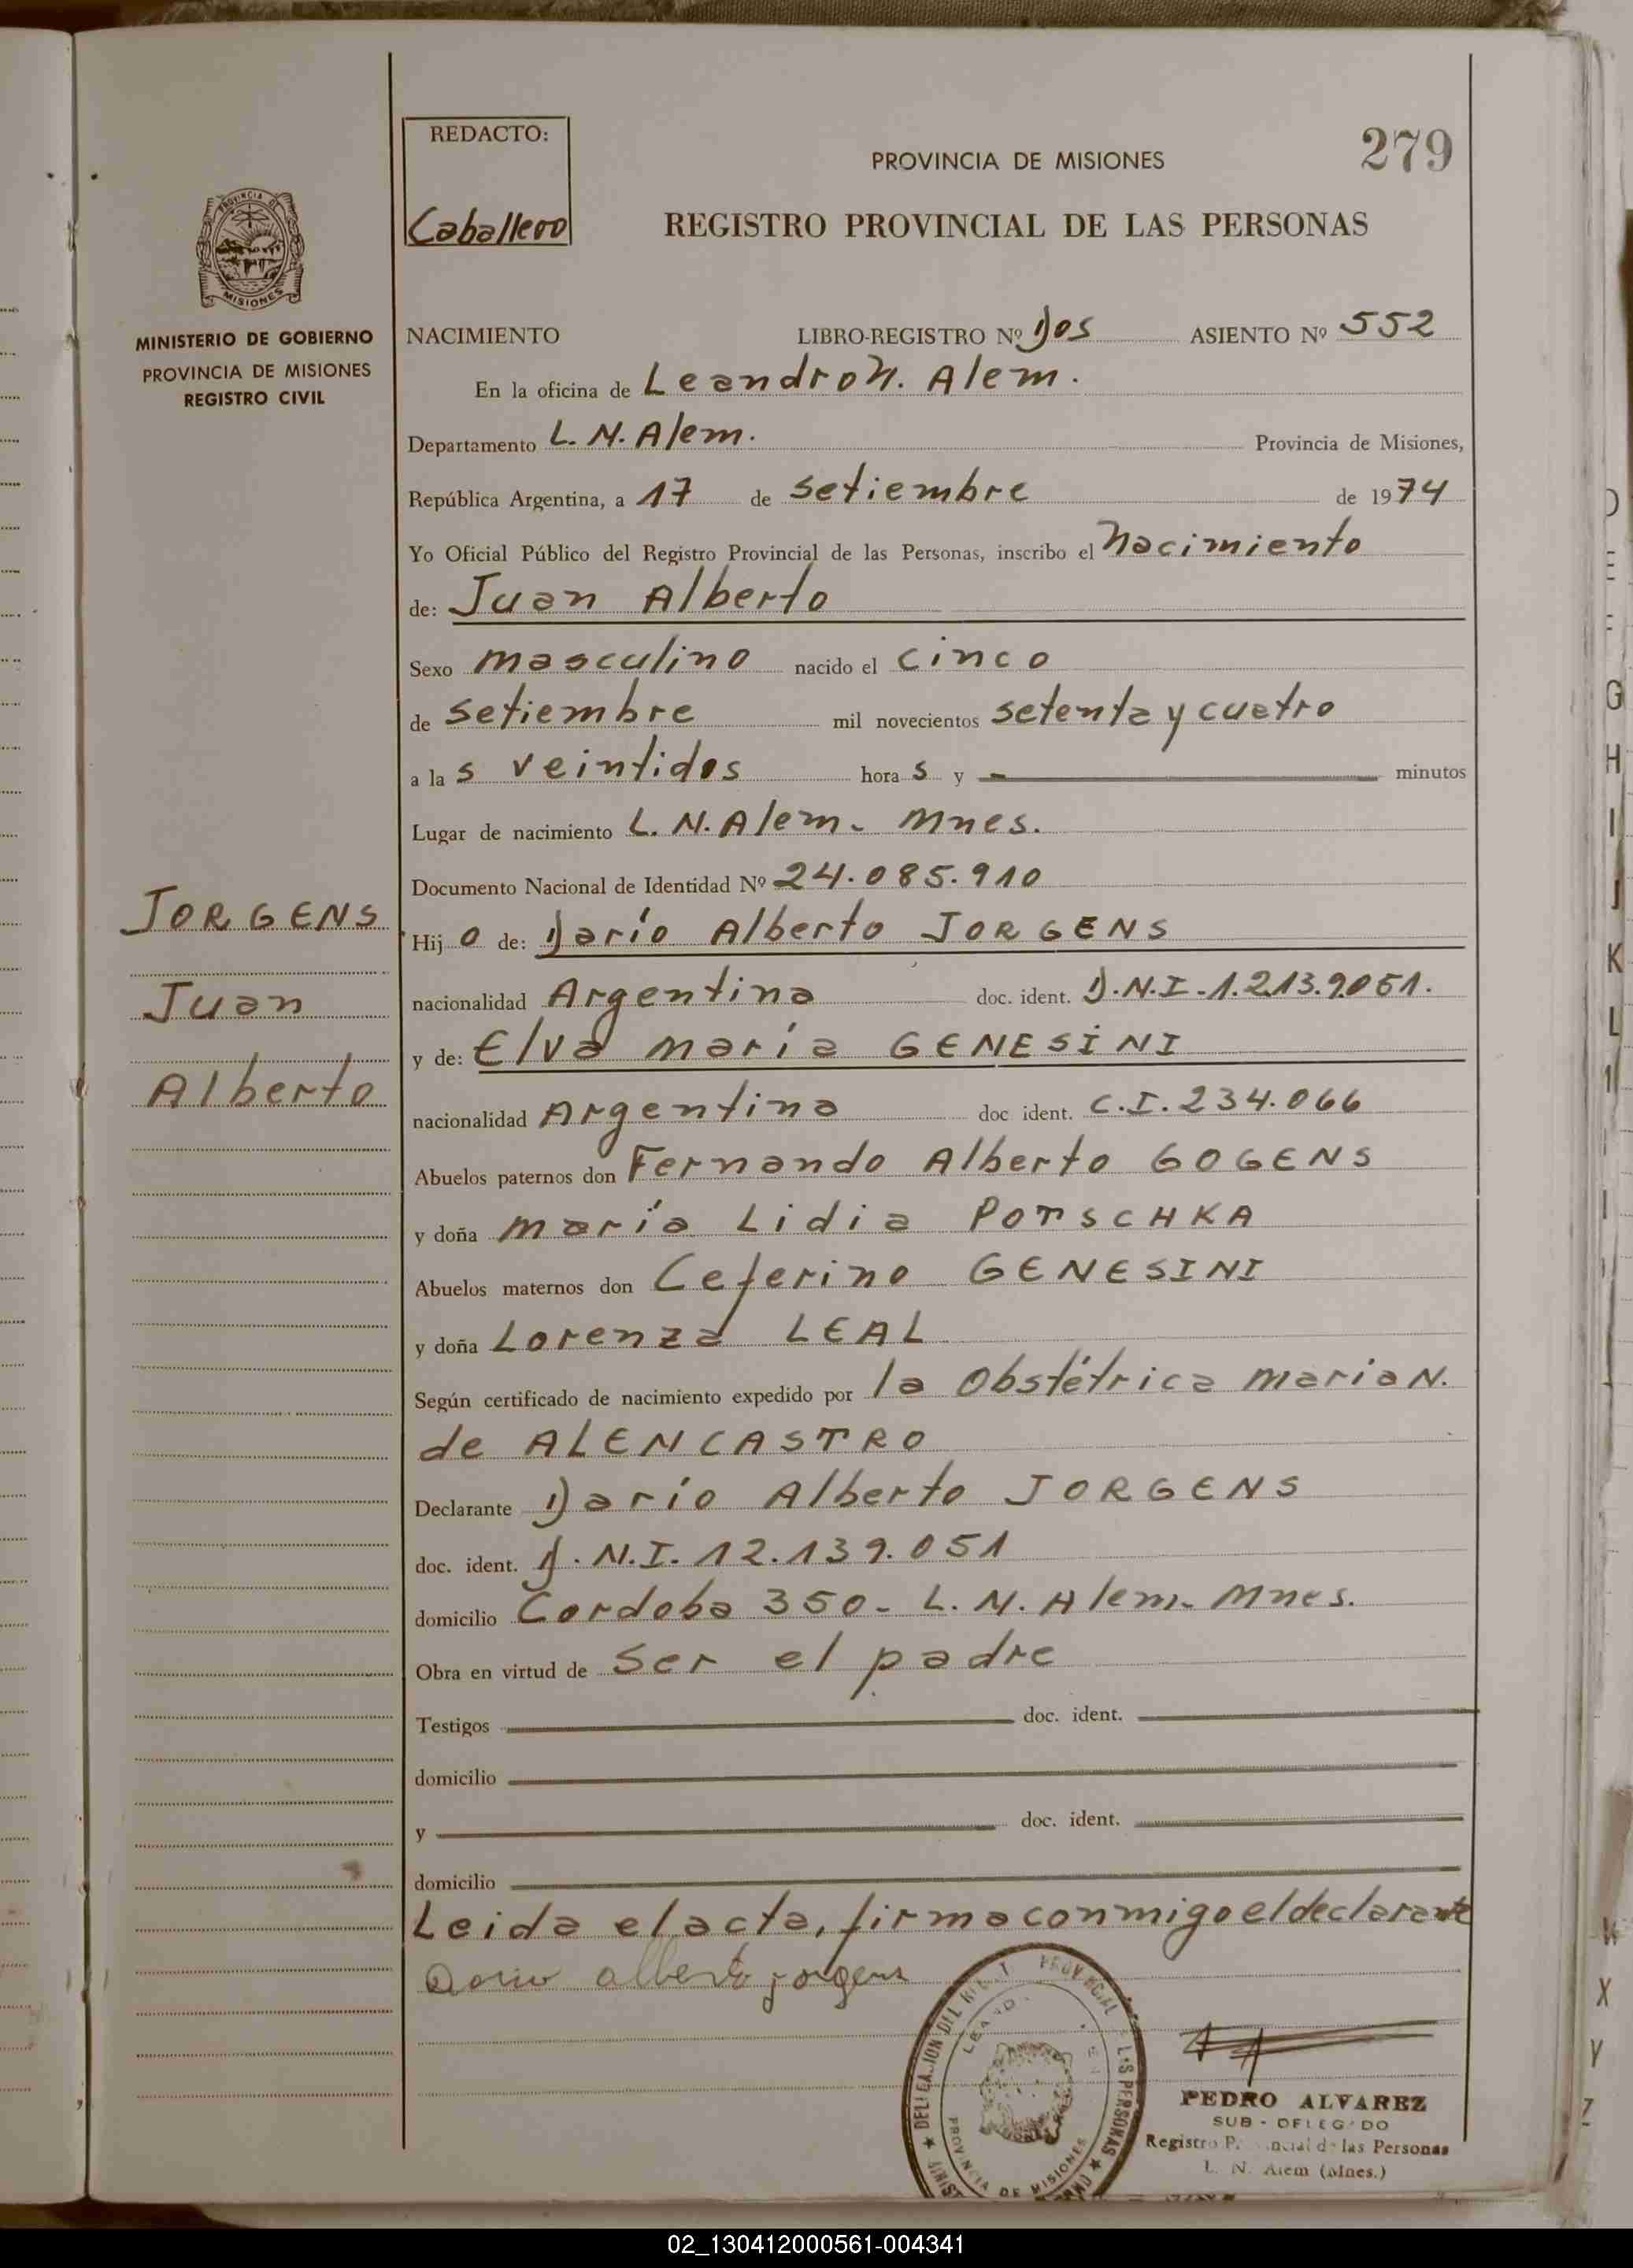 REDACTO:
Caballero
PROVINCIA DE MISIONES
279
REGISTRO PROVINCIAL DE LAS PERSONAS
PROVINCIA DE
MISIONES
MINISTERIO DE GOBIERNO
PROVINCIA DE MISIONES
REGISTRO CIVIL
NACIMIENTO LIBRO-REGISTRO Nº Dos ASIENTO Nº 552
En la oficina de Leandro N. Alem.
Departamento L. N. Alem. Provincia de Misiones,
República Argentina, a 17 de setiembre de 1974
Yo Oficial Público del Registro Provincial de las Personas, inscribo el Nacimiento
de: Juan Alberto
Sexo masculino nacido el cinco
de setiembre mil novecientos setenta y cuatro
a la s veintidos hora s y - minutos
Lugar de nacimiento L. N. Alem- Mnes.
Documento Nacional de Identidad Nº 24.085.910
JORGENS
Juan
Alberto
Hij o de: Darío Alberto JORGENS
nacionalidad Argentina doc. ident. D.N.I-1.213.9.051.
y de: Elva maría GENESINI
nacionalidad Argentina doc ident. C.I. 234.066
Abuelos paternos don Fernando Alberto GOGENS
y doña maría Lidia POTSCHKA
Abuelos maternos don Ceferino GENESINI
y doña Lorenza LEAL
Según certificado de nacimiento expedido por la Obstétrica maria N.
de ALENCASTRO
Declarante Darío Alberto JORGENS
doc. ident. D.N.I. 12.139.051
domicilio Cordoba 350- L. N. Alem- Mnes.
Obra en virtud de ser el padre
Testigos doc. ident.
domicilio
y doc. ident.
domicilio
Leida el acta, firma conmigo el declarante
Dario alberto jorgens
DELEGACION DEL PROVINCIAL PERSONAS
PROVINCIA DE MISIONES
PEDRO ALVAREZ
SUB - DELEGADO
Registro Provincial de las Personas
L. N. Alem (Mnes.)
G
H
I
J
K
L
X
Y
Z
02_130412000561-004341